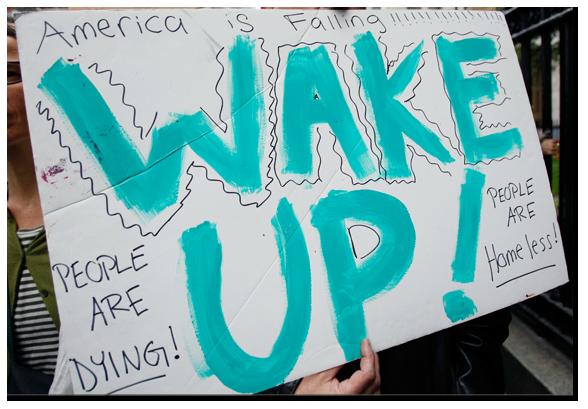 America is Falling !!!!!!!!!!!!!!!
WAKE
UP!
PEOPLE
ARE
DYING!
PEOPLE
ARE
Homeless!